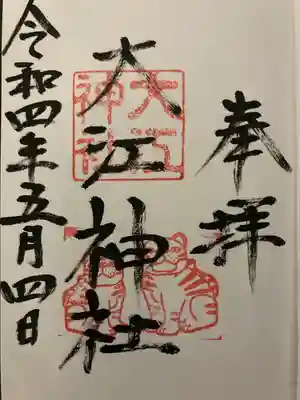 奉拝
大江神社
大江
神社
令和四年五月四日